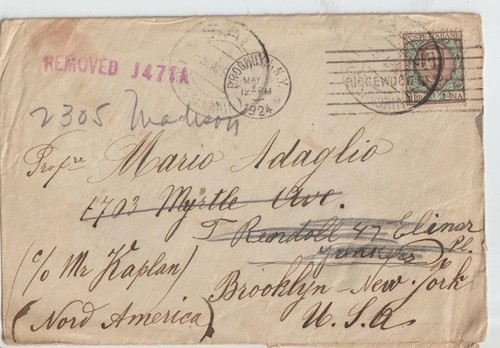 REMOVED J471A
BROOKLYN, N.Y.
MAY
12-PM
1924
RIDGEWOOD
POSTE ITALIANE
LIRA UNA
2305 Madison
Profre Mario Adaglio
1713 Myrtle Ave.
T Rendoll 47 Elinor Pl.
Yonkers
(c/o Mr Kaplan)
Brooklyn - New-York
(Nord America)
U.S.A